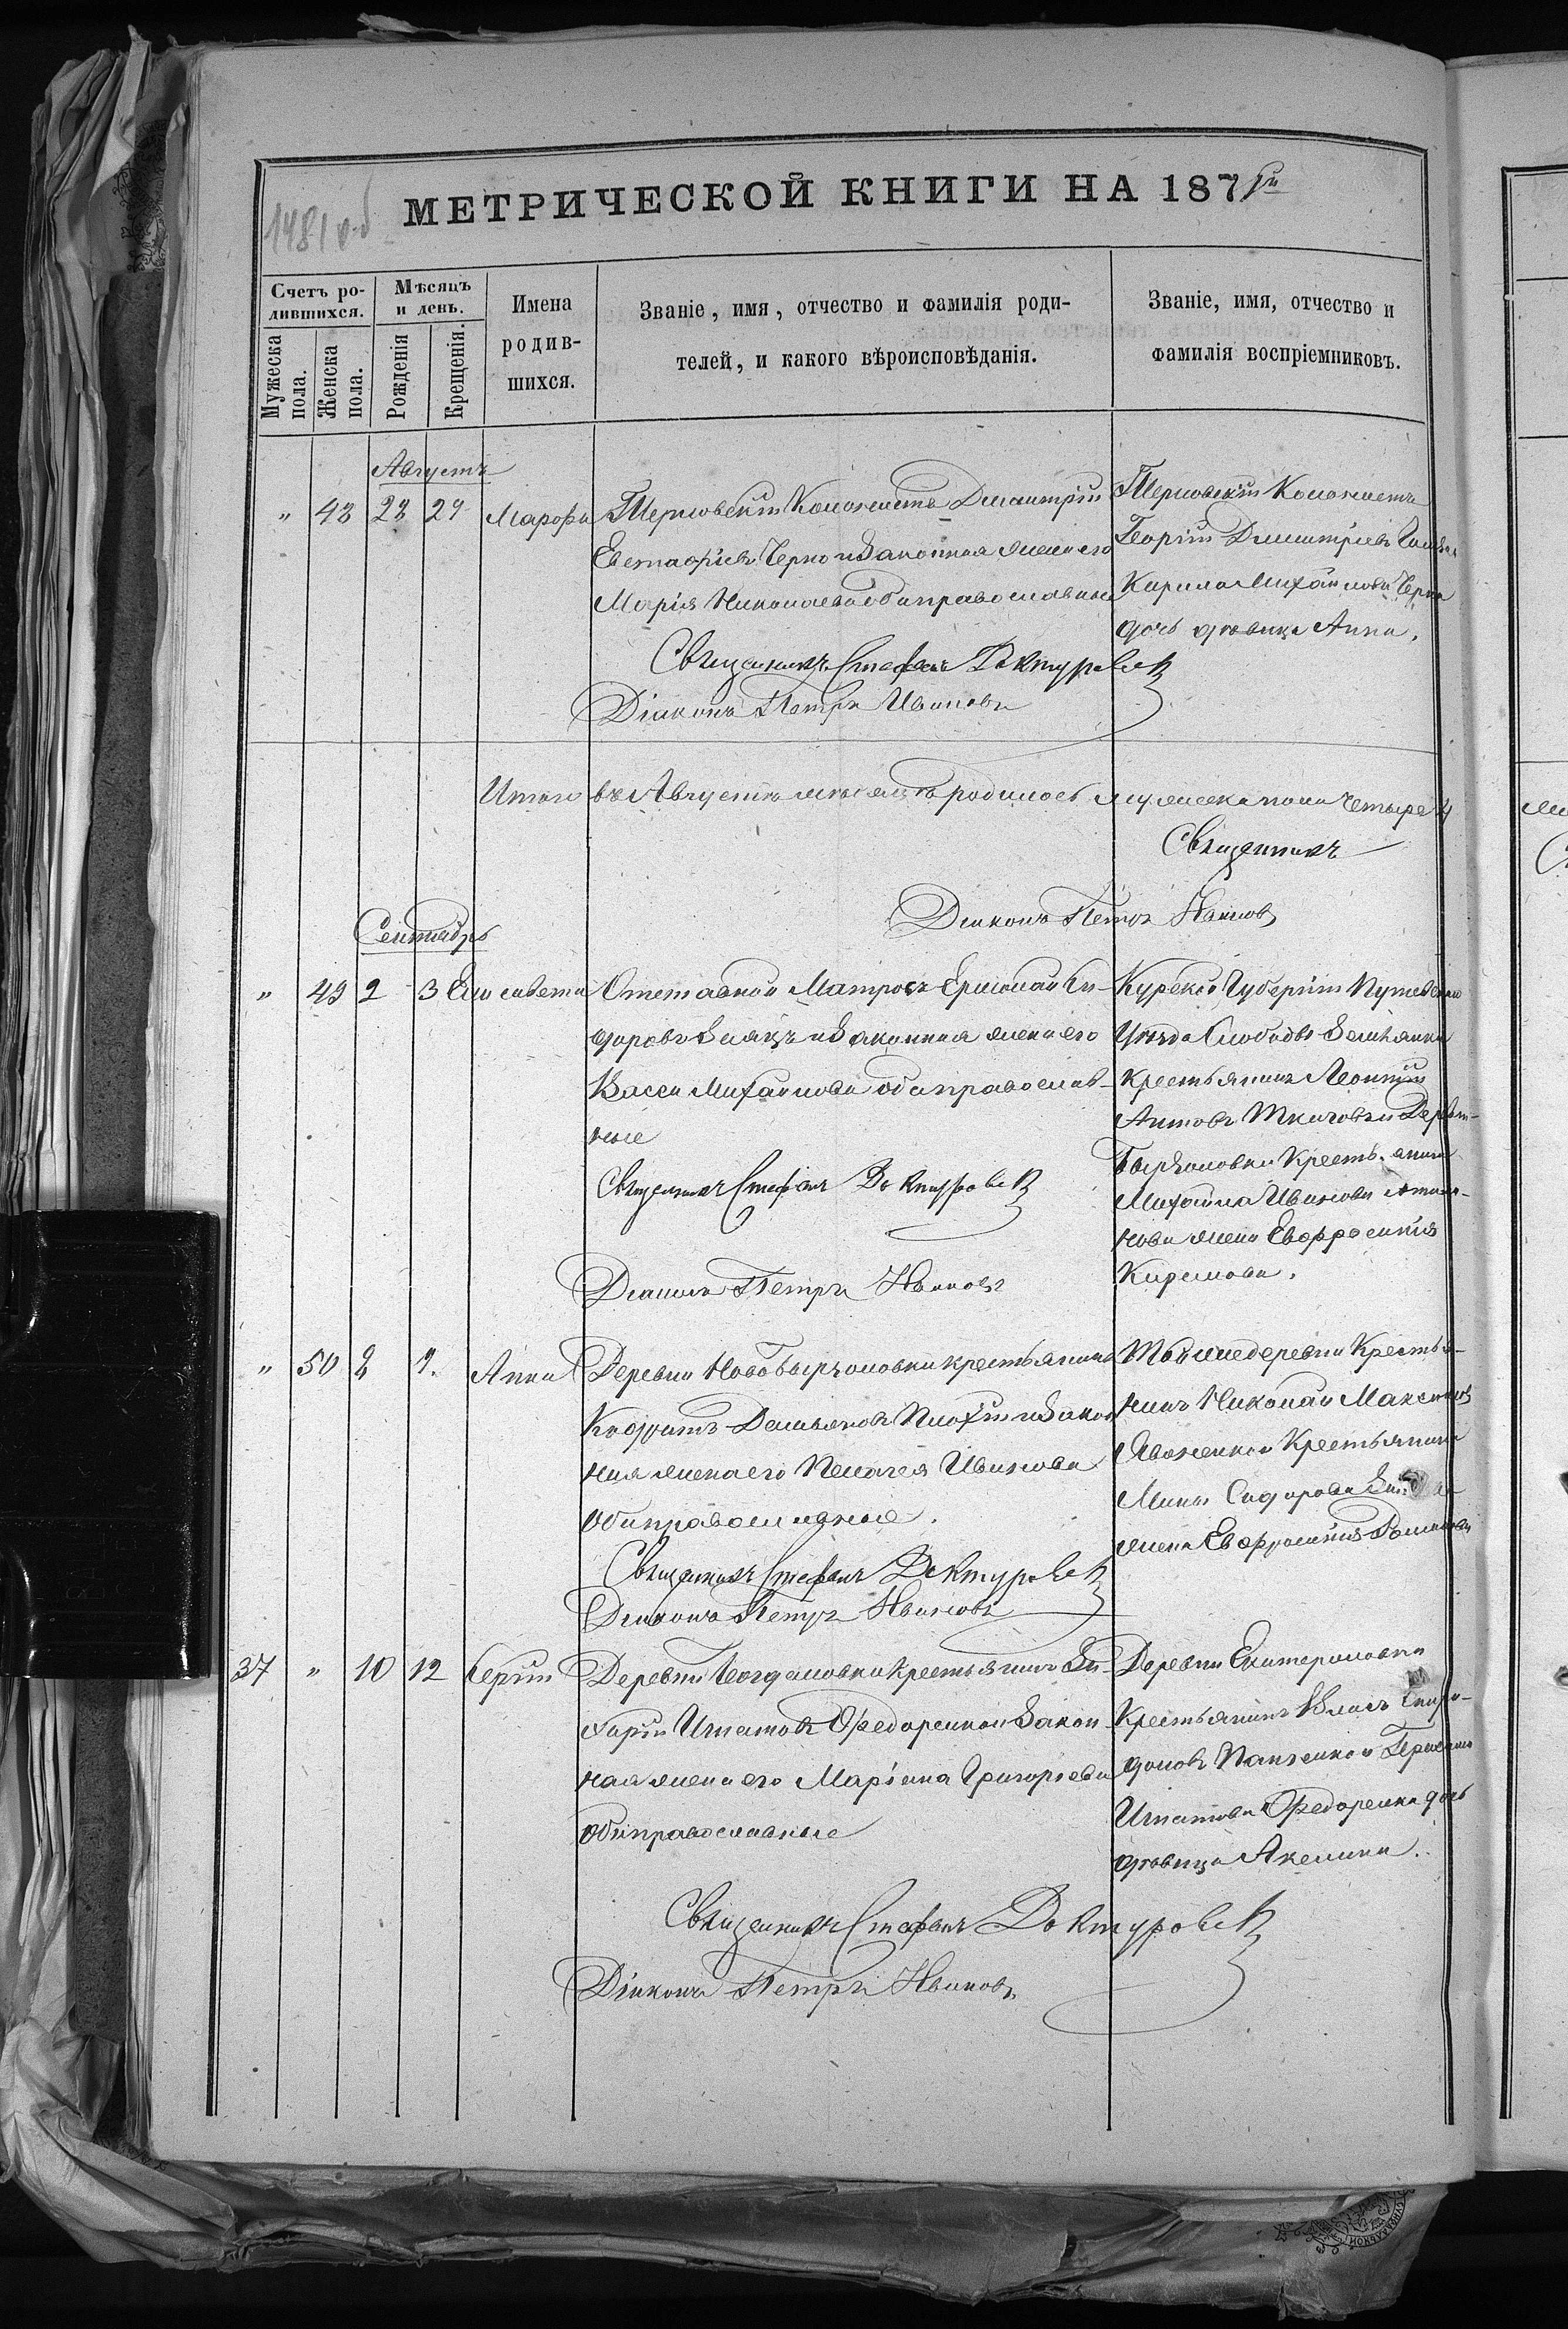 1481 об
МЕТРИЧЕСКОЙ КНИГИ НА 187
Счетъ ро-
дившихся.
Мужеска пола.
Женска пола.
Мѣсяцъ
и день.
Рожденія
Крещенія.
Имена
родив-
шихся.
Званіе, имя, отчество и фамилія роди-
телей, и какого вѣроисповѣданія.
Званіе, имя, отчество и
фамилія воспріемниковъ.
Августъ
" 48 28 29 Марфа
Терновскій Колонистъ Димитрій
Евстафіевъ Черно и законная жена его
Марія Николаева оба православные
Священникъ Стефанъ Доктуровск
Діаконъ Петръ Ивановъ
Терновскій Колонистъ
Георгій Димитріевъ
Кирила Михайлова Черна
дочь дѣвица Анна.
Итого въ Августѣ мѣсяцѣ родилось мужеска пола четыре 4
Священникъ
Діаконъ Петръ Ивановъ
Сентябрь
" 49 2 3 Елисавета
Отставной Матросъ Ермолай Си-
доровъ Заяцъ и законная жена его
Васса Михайлова оба православ-
ные
Священникъ Стефанъ Доктуровск
Діаконъ Петръ Ивановъ
Курской Губерніи Путивскаго
Уѣзда Слободы
Крестьянинъ Леонтій
Антовъ Деревни
Бырзоловки Крестьянина
Михайла Иванова
нова жена Евфросинія
Кирилова.
" 50 2 9. Анна
Деревни Новобырзоловки крестьянинъ
Кодратъ Демьяновъ и закон
ная жена его Пелагея Иванова
оба православные.
Священникъ Стефанъ Доктуровск
Діаконъ Петръ Ивановъ
Той же деревни Крестья-
нинъ Николай Максимовъ
Крестьянина
Мины Сидорова
жена Евфросинія Романова
37 " 10 12 Сергій
Деревни Богдановки крестьянинъ За-
харій Игнатовъ Федоренко и закон-
ная жена его Маріана Григорьева
оба православные
Священникъ Стефанъ Доктуровск
Діаконъ Петръ Ивановъ
Деревни Екатериновки
Крестьянинъ Власъ Спири-
доновъ Панченко и
Игнатова Федоренка дочь
дѣвица Акелина.